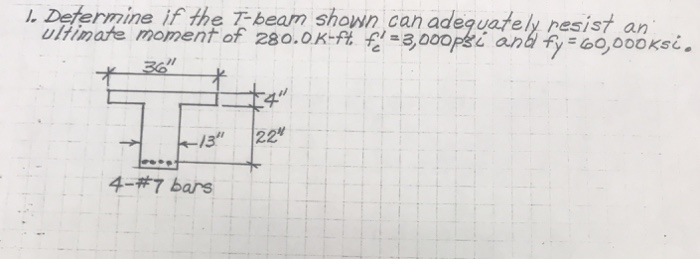 1. Determine if the T-beam shown can adequately resist an
ultimate moment of 280.0K-ft. f'c = 3,000psi and fy = 60,000ksi.
36"
4"
13"
22"
4-#7 bars